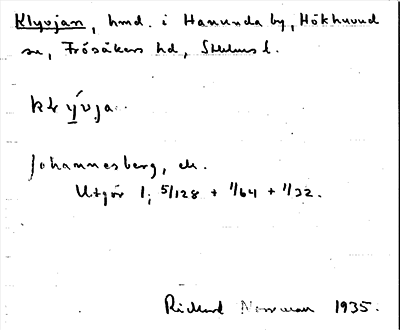 Klyvjan, hmd. i Hanunda by, Hökhuvud
sn, Frösåkers hd, Sthlms l.
klȳvja
Johannesberg, ek.
Utgör 1; 5/128 + 1/64 + 1/32.
Rickard Norrman 1935.